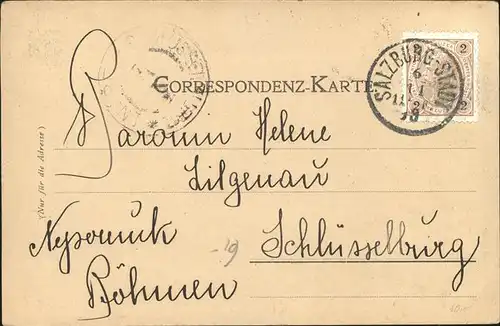 CORRESPONDENZ-KARTE
SALZBURG-STADT
2 2
6
11
2 2
(Nur für die Adresse)
Baronin Helene
Lilgenau
Schlüsselburg
Böhmen
-19